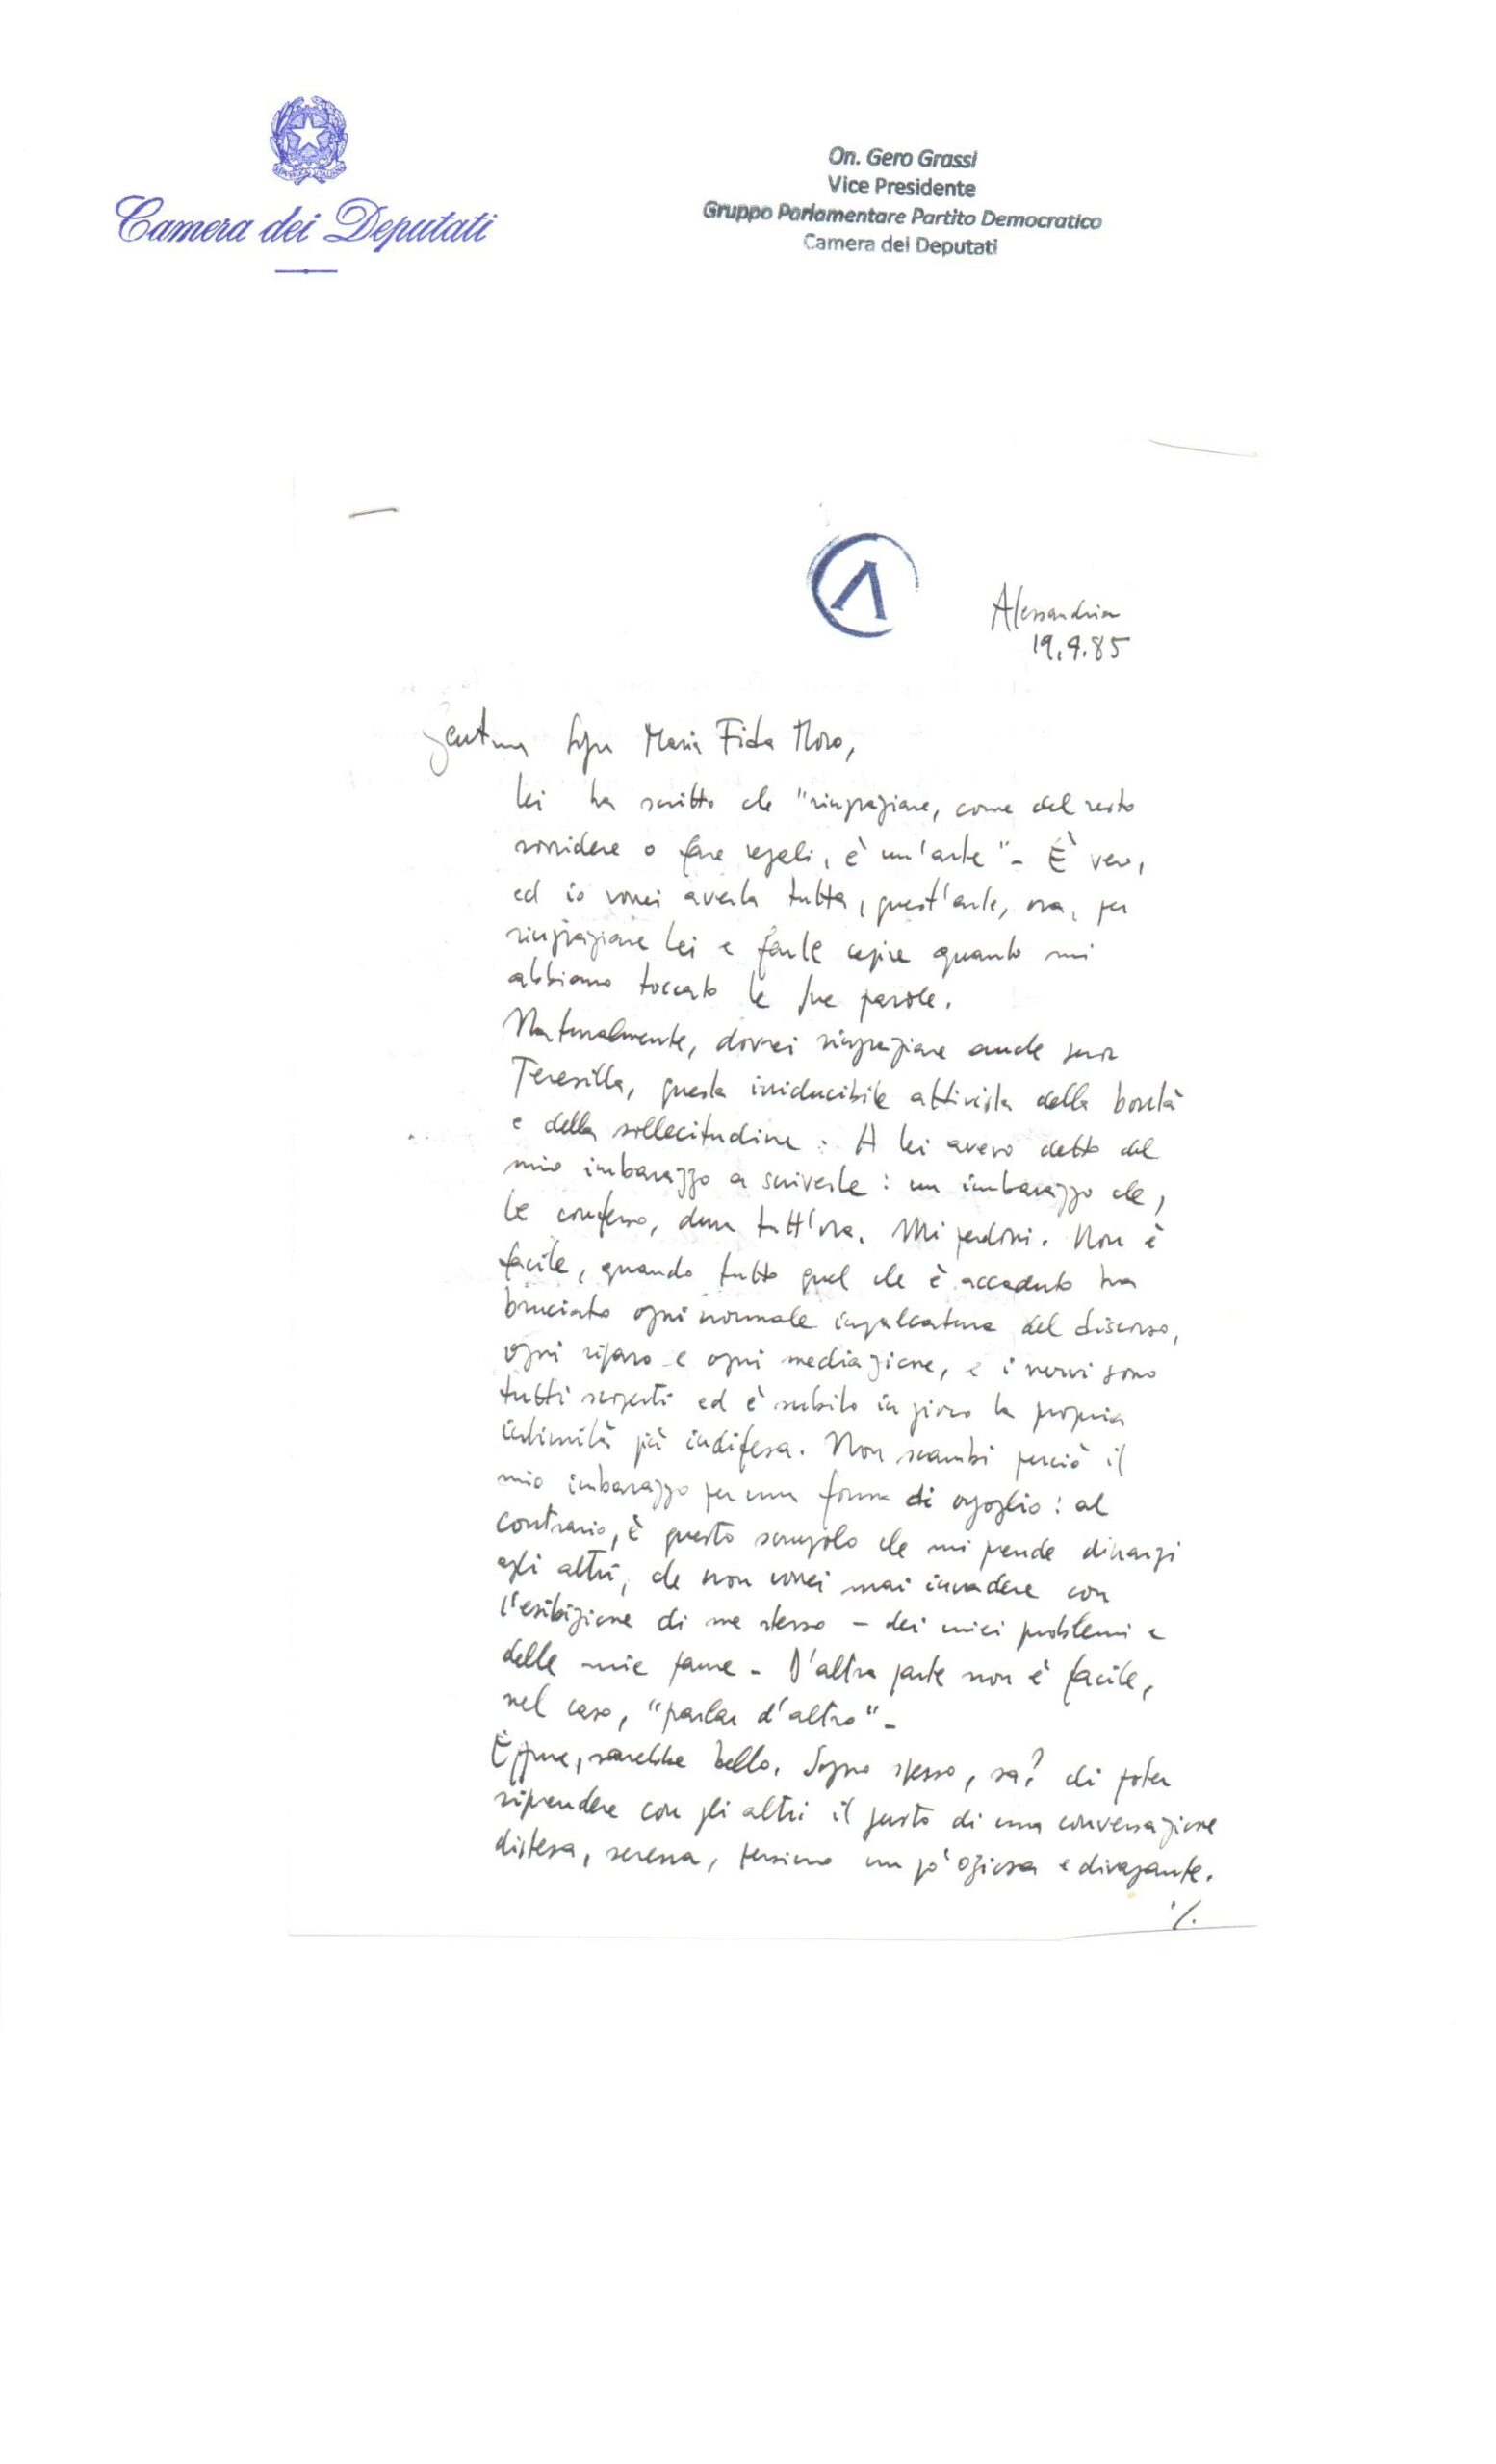 REPUBBLICA ITALIANA
Camera dei Deputati
On. Gero Grassi
Vice Presidente
Gruppo Parlamentare Partito Democratico
Camera dei Deputati
Alessandria
19.4.85
Gent.ma Sig.ra Maria Fida Moro,
lei ha scritto che "ringraziare, come del resto
sorridere o fare regali, è un'arte"- È vero,
ed io vorrei averla tutta, quest'arte, ora, per
ringraziare lei e farle capire quanto mi
abbiano toccato le sue parole.
Naturalmente, dovrei ringraziare anche suor
Teresilla, questa irriducibile attivista della bontà
e della sollecitudine. A lei avevo detto del
mio imbarazzo a scriverle: un imbarazzo che,
le confesso, dura tutt'ora. Mi perdoni. Non è
facile, quando tutto quel che è accaduto ha
bruciato ogni normale impalcatura del discorso,
ogni riparo e ogni mediazione, e i nervi sono
tutti scoperti ed è subito in gioco la propria
intimità più indifesa. Non scambi perciò il
mio imbarazzo per una forma di orgoglio: al
contrario, è questo scrupolo che mi prende dinanzi
agli altri, che non vorrei mai invadere con
l'esibizione di me stesso - dei miei problemi e
delle mie pene - D'altra parte non è facile,
nel caso, "parlar d'altro"-
Eppure, sarebbe bello. Sogno spesso, sa? di poter
riprendere con gli altri il gusto di una conversazione
distesa, serena, persino un po' oziosa e divagante.
./.